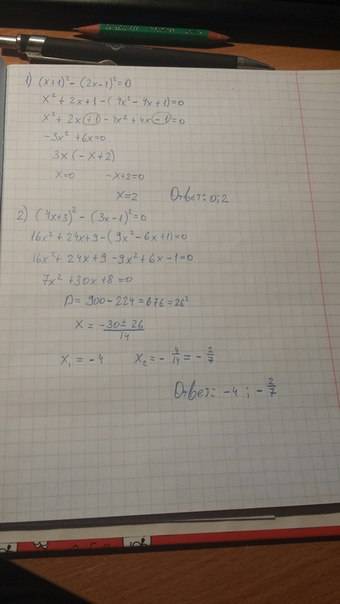 1) (x+1)² - (2x-1)² = 0
x² + 2x + 1 - (4x² - 4x + 1) = 0
x² + 2x + 1 - 4x² + 4x - 1 = 0
-3x² + 6x = 0
3x (-x + 2)
x = 0   -x + 2 = 0
x = 2   Ответ: 0; 2
2) (4x+3)² - (3x-1)² = 0
16x² + 24x + 9 - (9x² - 6x + 1) = 0
16x² + 24x + 9 - 9x² + 6x - 1 = 0
7x² + 30x + 8 = 0
D = 900 - 224 = 676 = 26²
x = \frac{-30 ± 26}{14}
x₁ = -4   x₂ = -\frac{4}{14} = -\frac{2}{7}
Ответ: -4; -\frac{2}{7}